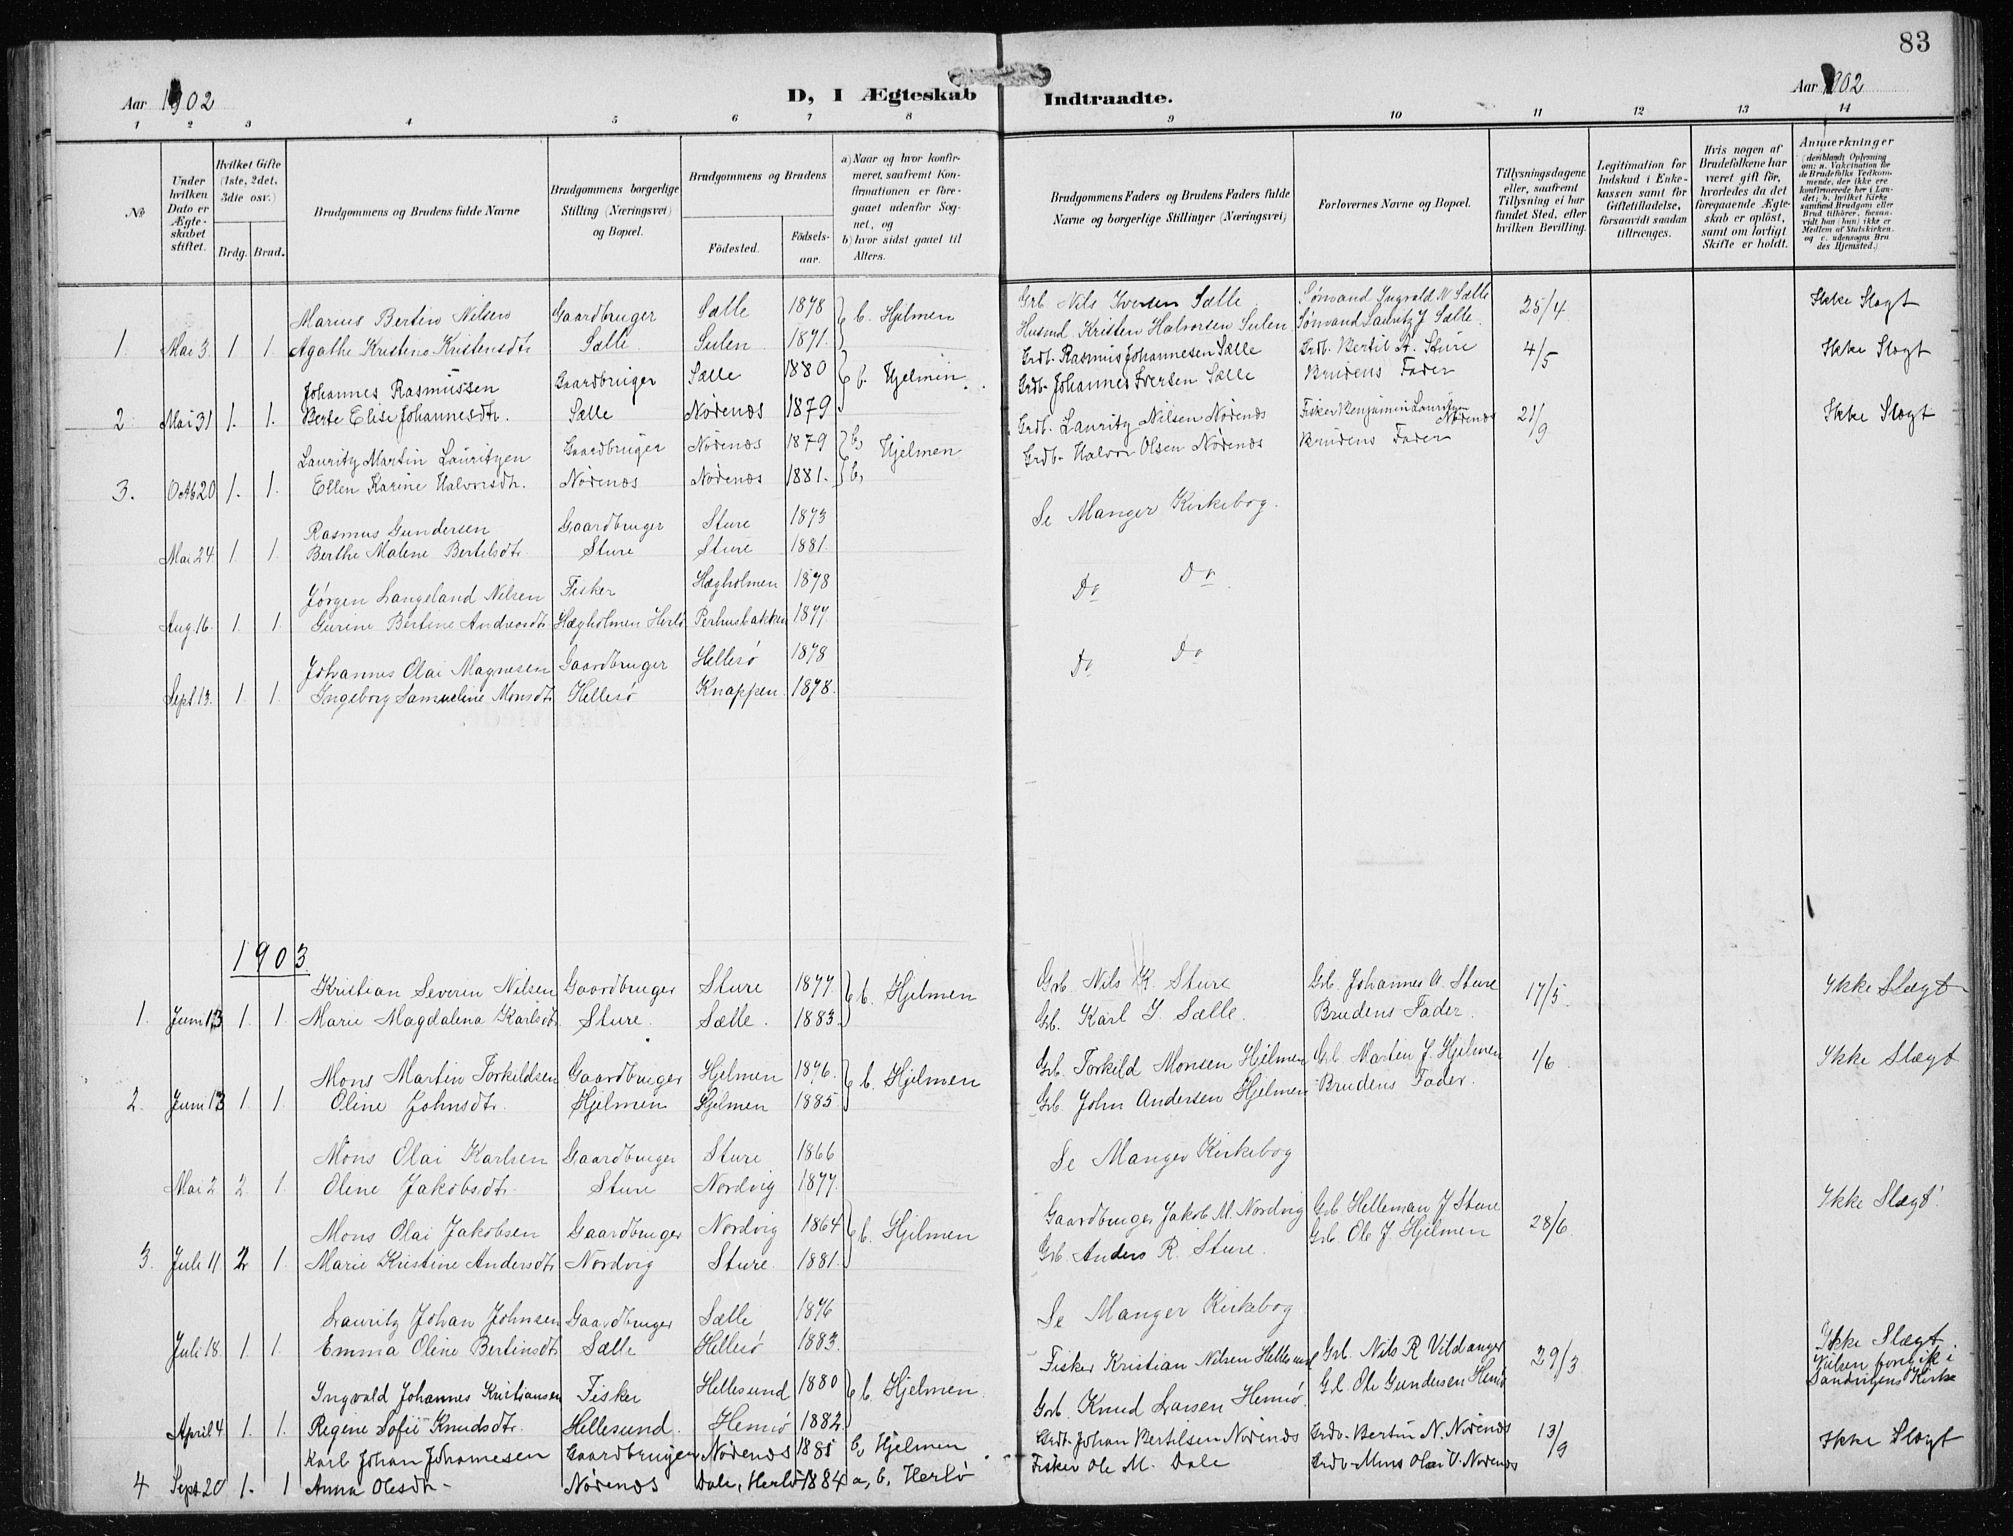 83
Aar 1902
D, I Ægteskab Indtraadte.
Aar 1902
1 2 3 4 5 6 7 8 9 10 11 12 13 14
No
Under hvilken Dato er Ægteskabet stiftet.
Hvilket Gifte (1ste, 2det, 3die osv.)
Brdg. Brud.
Brudgommens og Brudens fulde Navne
Brudgommens borgerlige Stilling (Næringsvei) og Bopæl.
Brudgommens og Brudens
Fødested.
Fødselsaar.
a) Naar og hvor konfirmeret, saafremt Konfirmationen er foregaaet udenfor Sognet, og
b) hvor sidst gaaet til Alters.
Brudgommens Faders og Brudens Faders fulde Navne og borgerlige Stillinger (Næringsvei)
Forlovernes Navne og Bopæl.
Tillysningsdagene eller, saafremt Tillysning ei har fundet Sted, efter hvilken Bevilling.
Legitimation for Indskud i Enkekassen samt for Giftetilladelse, forsaavidt saadan tiltrænges.
Hvis nogen af Brudefolkene har været gift før, hvorledes da det foregaaende Ægteskab er opløst, samt om lovligt Skifte er holdt.
Anmerkninger (deriblandt Oplysning om: a. Vakcination for de Brudefolks Vedkommende, der ikke ere konfirmerede her i Landet; b. hvilket Kirkesamfund Brudgom eller Brud tilhører, forsaavidt han (hun) ikke er Medlem af Statskirken, og c. udensogns Brudes Hjemsted.)
Marius Bertin Nilsen Gaardbruger Sælle 1878 b. Hjelmen Grb. Nils Iversen Sælle Sømand Ingvald N Sælle 25/4 Ikke Slægt
1. Mai 3. 1 1. Agathe Kristine Kristensdtr Sælle Sulen 1871. Husmd Kristen Halvorsen Sulen Sømand Lauritz J Sælle.
Johannes Rasmussen Gaardbruger Sælle 1880 b. Hjelmen. Grdb. Rasmus Johannesen Sælle Grdb. Bertil A. Sture 4/5 Ikke Slægt
2 Mai 31 1. 1. Berte Elise Johannesdtr. Sælle Nødenæs 1879 Grdb. Johannes Iversen Sælle Brudens Fader
Lauritz Martin Lauritzen Gaardbruger Nødenæs 1879 b. Hjelmen Grdb. Lauritz Nilsen Nødenæs Fisker Benjamin Lauritzen Nødenæs 21/9 Ikke Slægt
3. Oktb 20 1. 1. Ellen Karine Halvorsdtr. Nødenæs Nødenæs 1881. b. Grdb. Halvor Olsen Nødenæs Brudens Fader
Rasmus Gundersen Gaardbruger Sture 1873 Se Manger Kirkebog.
Mai 24 1 1. Berthe Malene Bertelsdtr Sture Sture 1881.
Jørgen Langeland Nilsen Fisker Hægholmen 1878 Do Do
Aug. 16. 1. 1. Gurine Bertine Andreasdtr Hægholmen Herlø Perhusbakken 1877.
Johannes Olai Magnesen Gaardbruger Hellesø 1878 Do Do
Sept 13. 1 1. Ingeborg Samueline Monsdtr Hellesø Knappen 1878.
1903.
Kristian Severin Nilsen Gaardbruger Sture 1877 b. Hjelmen Grb. Nils K. Sture Grb. Johannes A. Sture 17/5. Ikke Slægt
1. Juni 13 1 1. Marie Magdalena Karlsdtr. Sture. Sælle. 1883. Grb. Karl J. Sælle. Brudens Fader.
Mons Martin Torkildsen Gaardbruger Hjelmen 1876. b. Hjelmen Grb. Torkild Monsen Hjelmen Grb. Martin J. Hjelmen 1/6 Ikke Slægt
2. Juni 13 1 1. Oline Johnsdtr. Hjelmen Hjelmen 1885. Grb. John Andersen Hjelmen Brudens Fader.
Mons Olai Karlsen Gaardbruger Sture 1866 Se Manger Kirkebog
Mai 2 2 1. Oline Jakobsdtr. Sture Nordvig 1877.
Mons Olai Jakobsen Gaardbruger Nordvig 1864 b. Hjelmen Gaardbruger Jakob M. Nordvig Grb. Helleman J Sture 28/6 Ikke Slægt
3. Juli 11 2 1. Marie Kristine Andersdtr Nordvig Sture. 1881. Grb. Anders R. Sture. Grb. Ole J Hjelmen
Lauritz Johan Johnsen Gaardbruger Sælle 1876 Se Manger Kirkebog
Juli 18. 1. 1. Emma Oline Bertinsdtr Sælle Hellesø 1883.
Ingvald Johannes Kristiansen Fisker Hellesund 1880 b. Hjelmen. Fisker Kristian Nilsen Hellesund Grb. Nils R Vildanger 29/3 Ikke Slægt
Vielsen foregik i Sandvigens Kirke
April 4. 1. 1. Regine Sofie Knudsdtr. Hellesund. Hernø 1882. Grb. Knud Larsen Hernø. Gb. Ole Gundersen Hernø
Karl Johan Johannesen Gaardbruger Nødenæs 1881 b, Hjelmen Grdb. Johan Bertilsen Nødenæs Grdb. Bertin N. Nødenæs 13/9 Ikke Slægt
4 Sept 20 1. 1 Anna Olesdtr. Nødenæs Dale, Herlø 1884 a, b, Herlø Fisker Ole M. Dale Grdb. Mons Olai V. Nødenæs